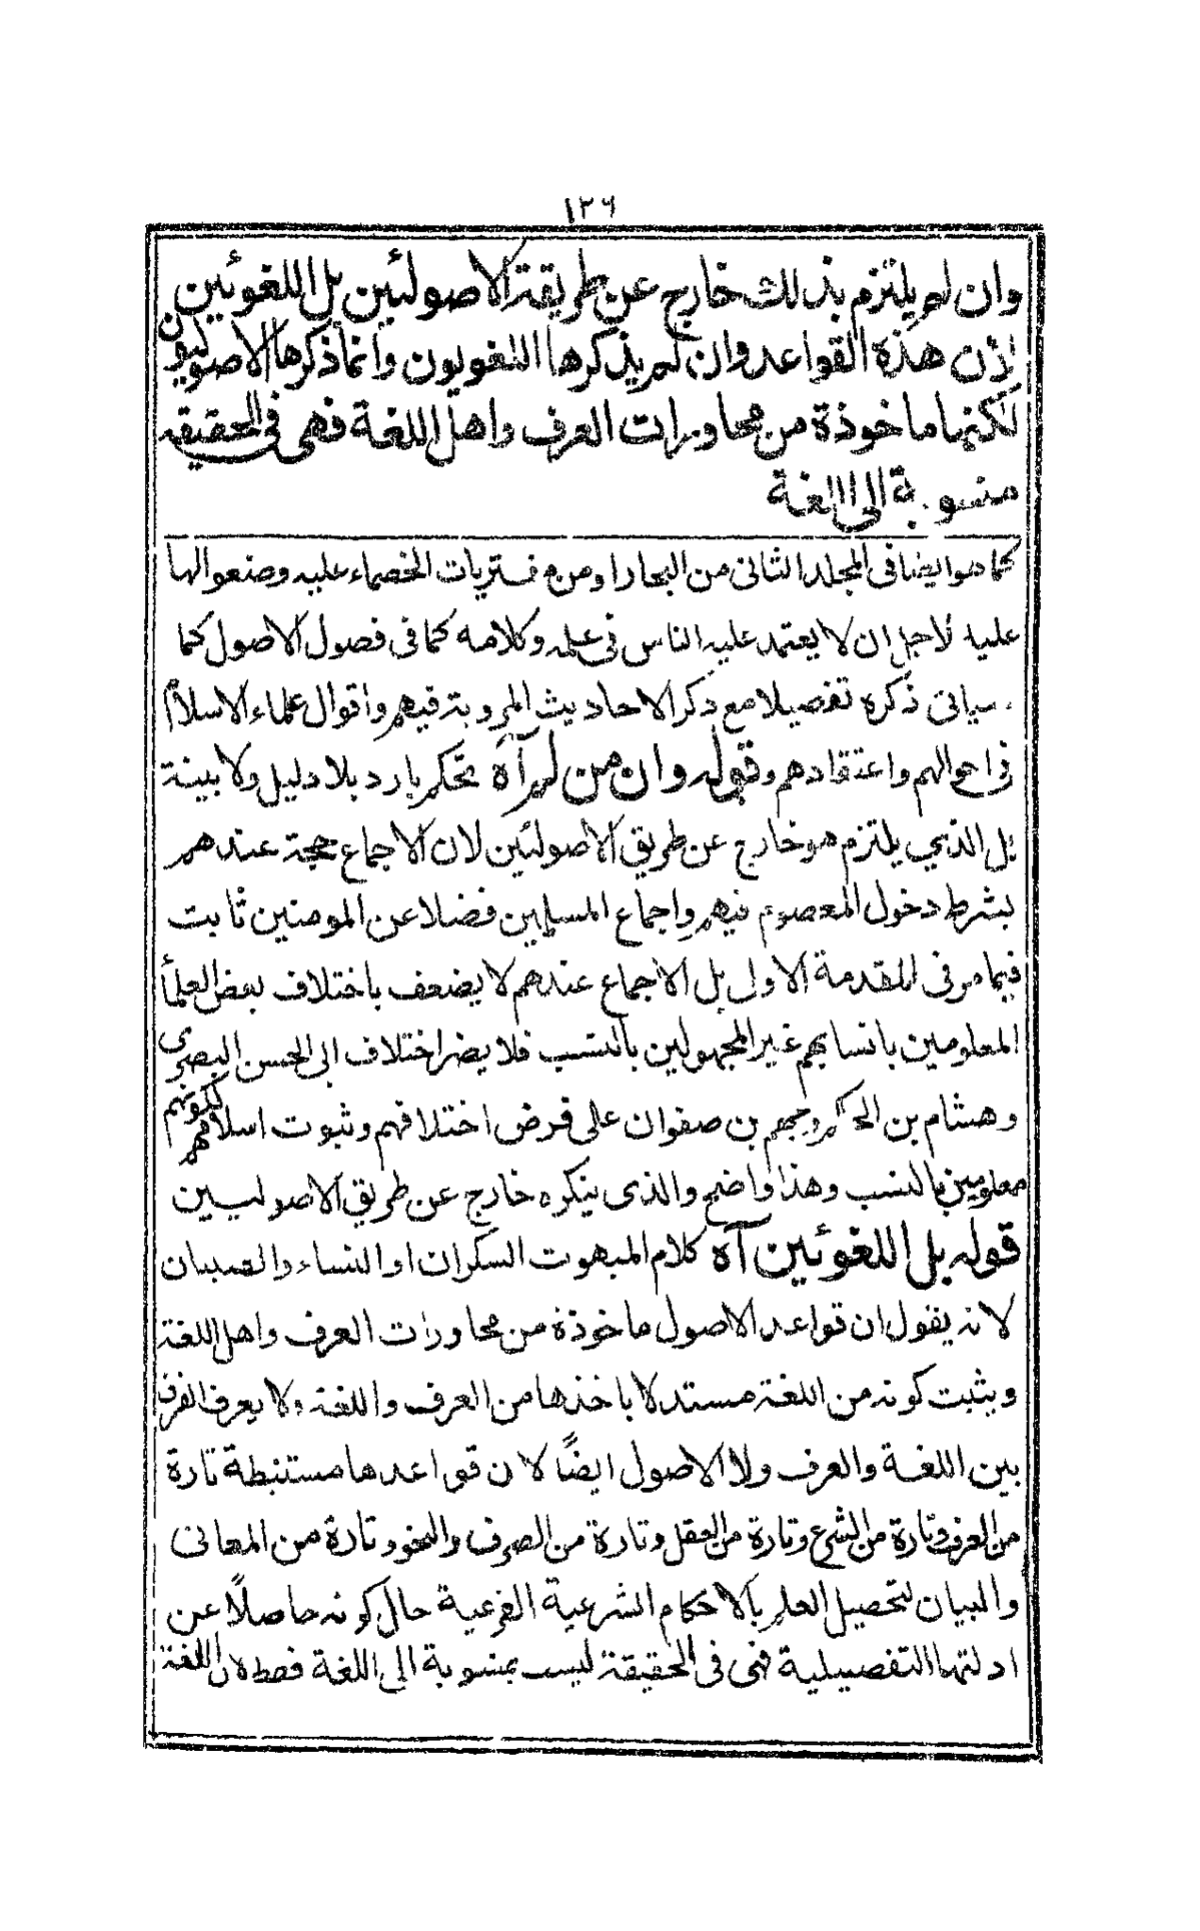 ١٢٦
وان لم يلتزم بذلك خارج عن طريقة الاصولئين بل اللغوئين
لان هذه القواعد وان لم يذكرها اللغويون وانما ذكرها الاصوليون
لكنها ماخوذة من محاورات العرف واهل اللغة فهي في الحقيقة
منسوبة الى اللغة
كما هو ايضا فى المجلد الثانى من البحار او من مفتريات الخصماء عليه وصنعوا لها
عليه لاجل ان لا يعتمد عليه الناس فى علمه وكلامه كما فى فصول الاصول كما
سياتى ذكره تفصيلا مع ذكر الاحاديث المروية فيهم واقوال علماء الاسلام
فى احوالهم واعتقادهم وقوله وان من لم آه تحكم بارد بلا دليل ولا بينة
بل الذي يلتزم هو خارج عن طريق الاصولئين لان الاجماع حجة عندهم
بشرط دخول المعصوم فيهم واجماع المسلمين فضلا عن المومنين ثابت
فيما مر فى المقدمة الاولى بل الاجماع عندهم لا يضعف باختلاف بعض العلمأ
المعلومين بانسابهم غير المجهولين بالنسب فلا يضر اختلاف ابى الحسن البصرى
وهشام بن الحكم وجهم بن صفوان على فرض اختلافهم وثبوت اسلامهم لكونهم
معلومين بالنسب وهذا واضح والذى ينكره خارج عن طريق الاصوليين
قوله بل اللغوئين آه كلام المبهوت السكران او النساء والصبيان
لانه يقول ان قواعد الاصول ماخوذة من محاورات العرف واهل اللغة
ويثبت كونه من اللغة مستدلا باخذها من العرف واللغة ولا يعرف الفرق
بين اللغة والعرف ولا الاصول ايضًا لان قواعدها مستنبطة تارة
من العرف وتارة من الشرع وتارة من العقل وتارة من الصرف والنحو وتارة من المعانى
والبيان لتحصيل العلم بالاحكام الشرعية الفرعية حال كونه حاصلًا عن
ادلتها التفصيلية فهى فى الحقيقة ليست بمنسوبة الى اللغة فقط لان اللغة